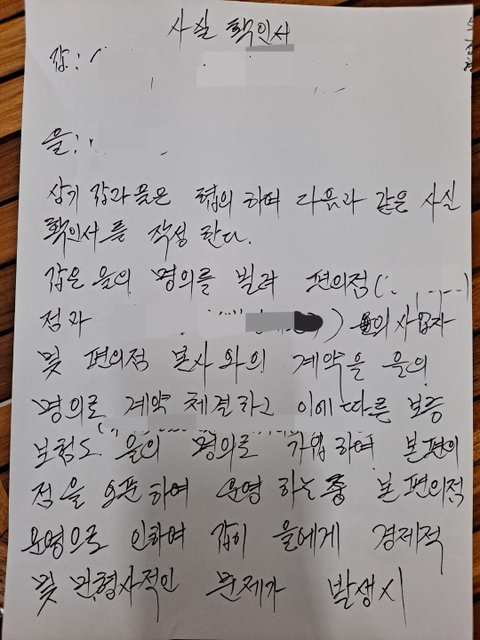 사실 확인서
갑:
을:
상기 갑과 을은 협의 하며 다음과 같은 사실
확인서를 작성 한다.
갑은 을의 명의를 빌려 편의점(
점과 ) 을의 사업자
및 편의점 본사와의 계약을 을의
명의로 계약 체결하고 이에 따른 보증
보험도 을의 명의로 가입하여 본편의
점을 오픈하여 운영 하는 중 본 편의점
운영으로 인하여 갑이 을에게 경제적
및 민,형사적인 문제가 발생시